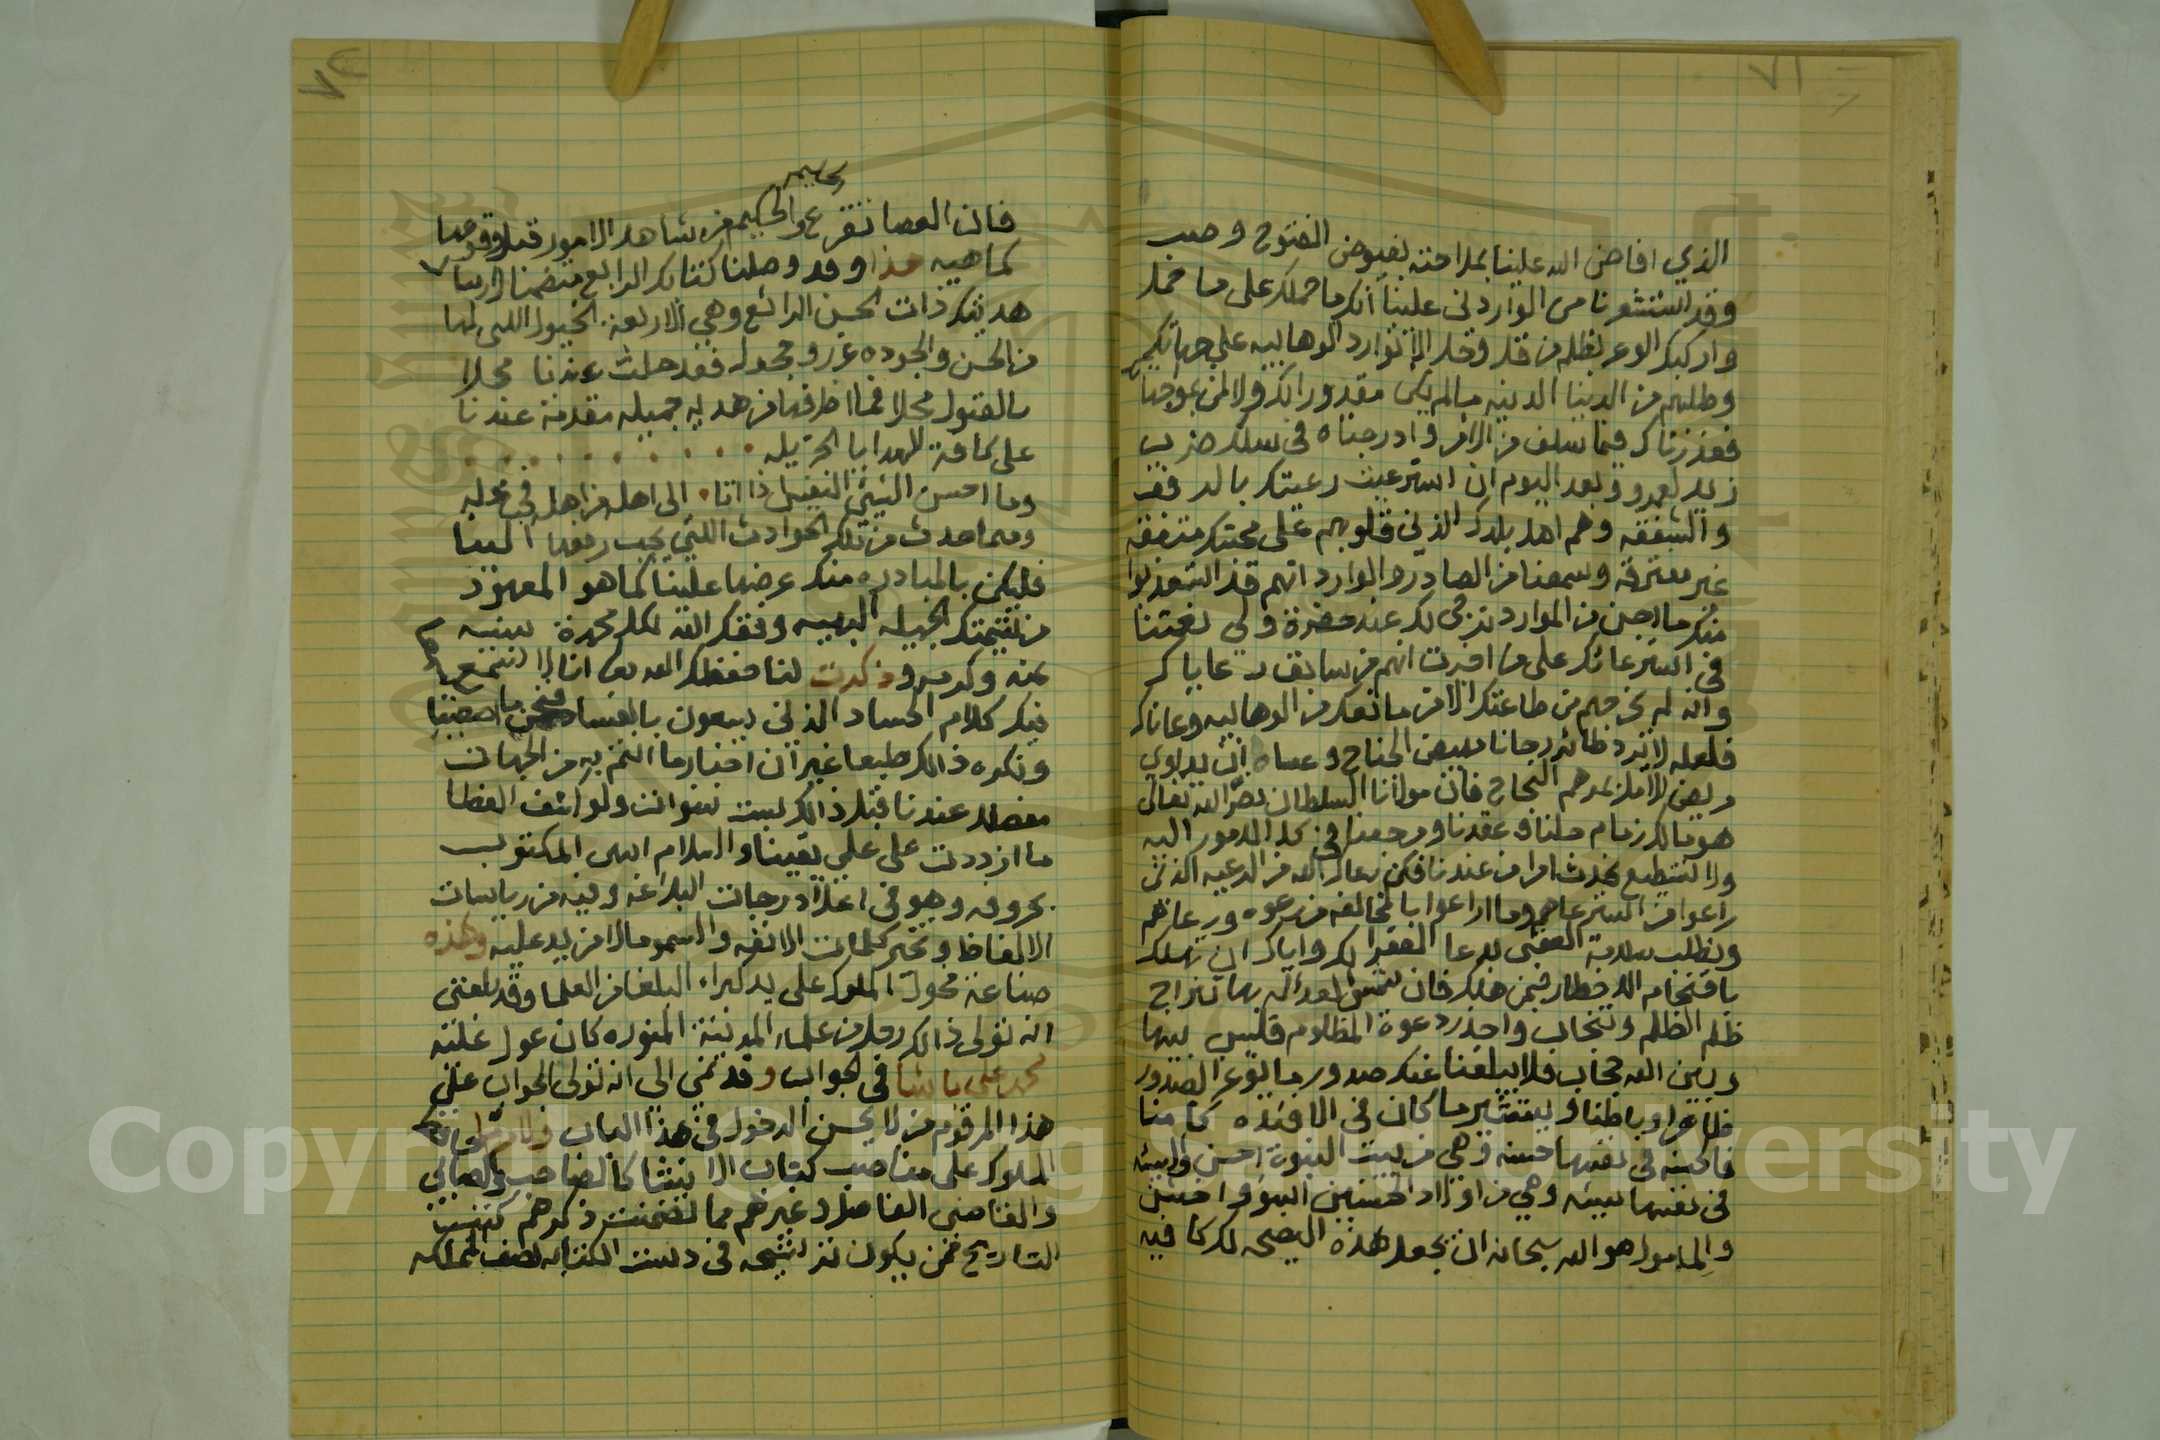 ٧١
الذي افاض الله علينا بملاحته بفيوض الفتوح وصب
وقد استشعرنا من الواردين علينا انكم ما حملكم على ما حمل
واركبكم الوعر بظلم من قل وجل الا توارد الوهابيه على جهاتكم
وطلبهم من الدنيا الدنيه ما لم يكن مقدورا لكم ولا لمن بموجها
فعذرناكم فيما سلف من الامر وادرجناه في سلك ضرب
زيد لعمرو وبعد اليوم ان استرعيت رعيتك بالرفق
والشفقه وهم اهل بلدك الذين قلوبهم على محبتك متفقه
غير مفترقة وسمعنا من الصادر والوارد انهم قد استعذبوا
منكم ما اجن من الموارد نرجى لك عند حضرة ولي نعمتنا
في استرعائك على ما اخبرت انهم من سابق رعاياكم
وانه لم يخرجهم من طاعتك الا من مانعك من الوهابيه وعاناك
فلعله لا يرد طائر رجانا مبيض الجناح وعساه ان يداوي
مريض الامل بمرهم النجاح فان مولانا السلطان نصره الله تعالى
هو مالك زمام حلنا وعقدنا ومرجعنا في كل الامور اليه
ولا نستطيع نحدث امرا من عندنا فكن رعاك الله من الرعيه الذين
راعوا من استرعاهم وما راعوا بالمخالفه من رعوه ورعاهم
ونطلب سلامة العقبى بدعا الفقرا لك واياك ان تهلك
باقتحام الاخطار فيمن هلك فان شمس العداله بها تنزاح
ظلم الظلم وتنجاب واحذر دعوة المظلوم فليس بينها
وبين الله حجاب فلا يبلغنا عنك صدور ما يوغر الصدور
ظاهرا وباطنا ويستثير ما كان في الافئده كامنا
فالحسنه في نفسها حسنه وهي من بيت النبوة احسن والسيئه
في نفسها سيئه وهي من اولاد الحسنين اسوء واحسن
والمامول هو الله سبحانه ان يجعل هذه النصيحه لك كافيه
٧٢
فان العصا تقرع والحكيم من شاهد الامور قبل وقوعها
كما هيه هذا وقد وصلنا كتابكم الرابع متضمنا ارسال
هديتكم ذات الحسن الرائع وهي الاربعة الخيول التي لها
من الحسن والجوده غرر وحجول فقد حلت عندنا محلا
بالقبول محلا فما اظرفها من هديه جميله مقدمة عندنا
على كافة الهدايا الجزيله . . . . . . . . . .
وما احسن الشيئ النفيس اذا اتا . الى اهله من اهله في محله
ومما حدث من تلك الحوادث اللتي يجب رفعها الينا
فليكن بالمبادره منك عرضها علينا كما هو المعهود
من شيمتك الجميله البهيه وفقك الله لكل محمدة سنيه
بمنه وكرمه وذكرت لنا حفظك الله بها انا لا نسمع
فيكم كلام الحساد الذين يسعون بالفساد فنحن ما اصغينا
ونكره ذالك طبعا غير ان اخبار ما انتم به من الجهات
مفصله عندنا قبل ذالك لست سنوات ولو انكشف الغطا
ما ازددت على علمي يقينا والسلام انتهى المكتوب
بحروفه وهو في اعلا درجات البلاغه وفيه من رياسات
الالفاظ وتخير كلمات الانفه والسمو مالا مزيد عليه وهذه
صناعة فحول الملوك على يد كبراء البلغا من العلما وقد بلغني
انه تولى ذالك رجل من علماء المدينة المنوره كان عول عليه
محمد علي باشا في الجواب وقد نمى الى انه تولى الجواب على
هذا المرقوم من لا يحسن الدخول في هذا الباب ولامر ما حافظ
الملوك على مناصب كتاب الانشا كالصاحب والصابي
والقاضي الفاضل وغيرهم مما تضمنت ذكرهم كتب
التاريخ فمن يكون ترشيحه في دست الكتابه نصف المملكه